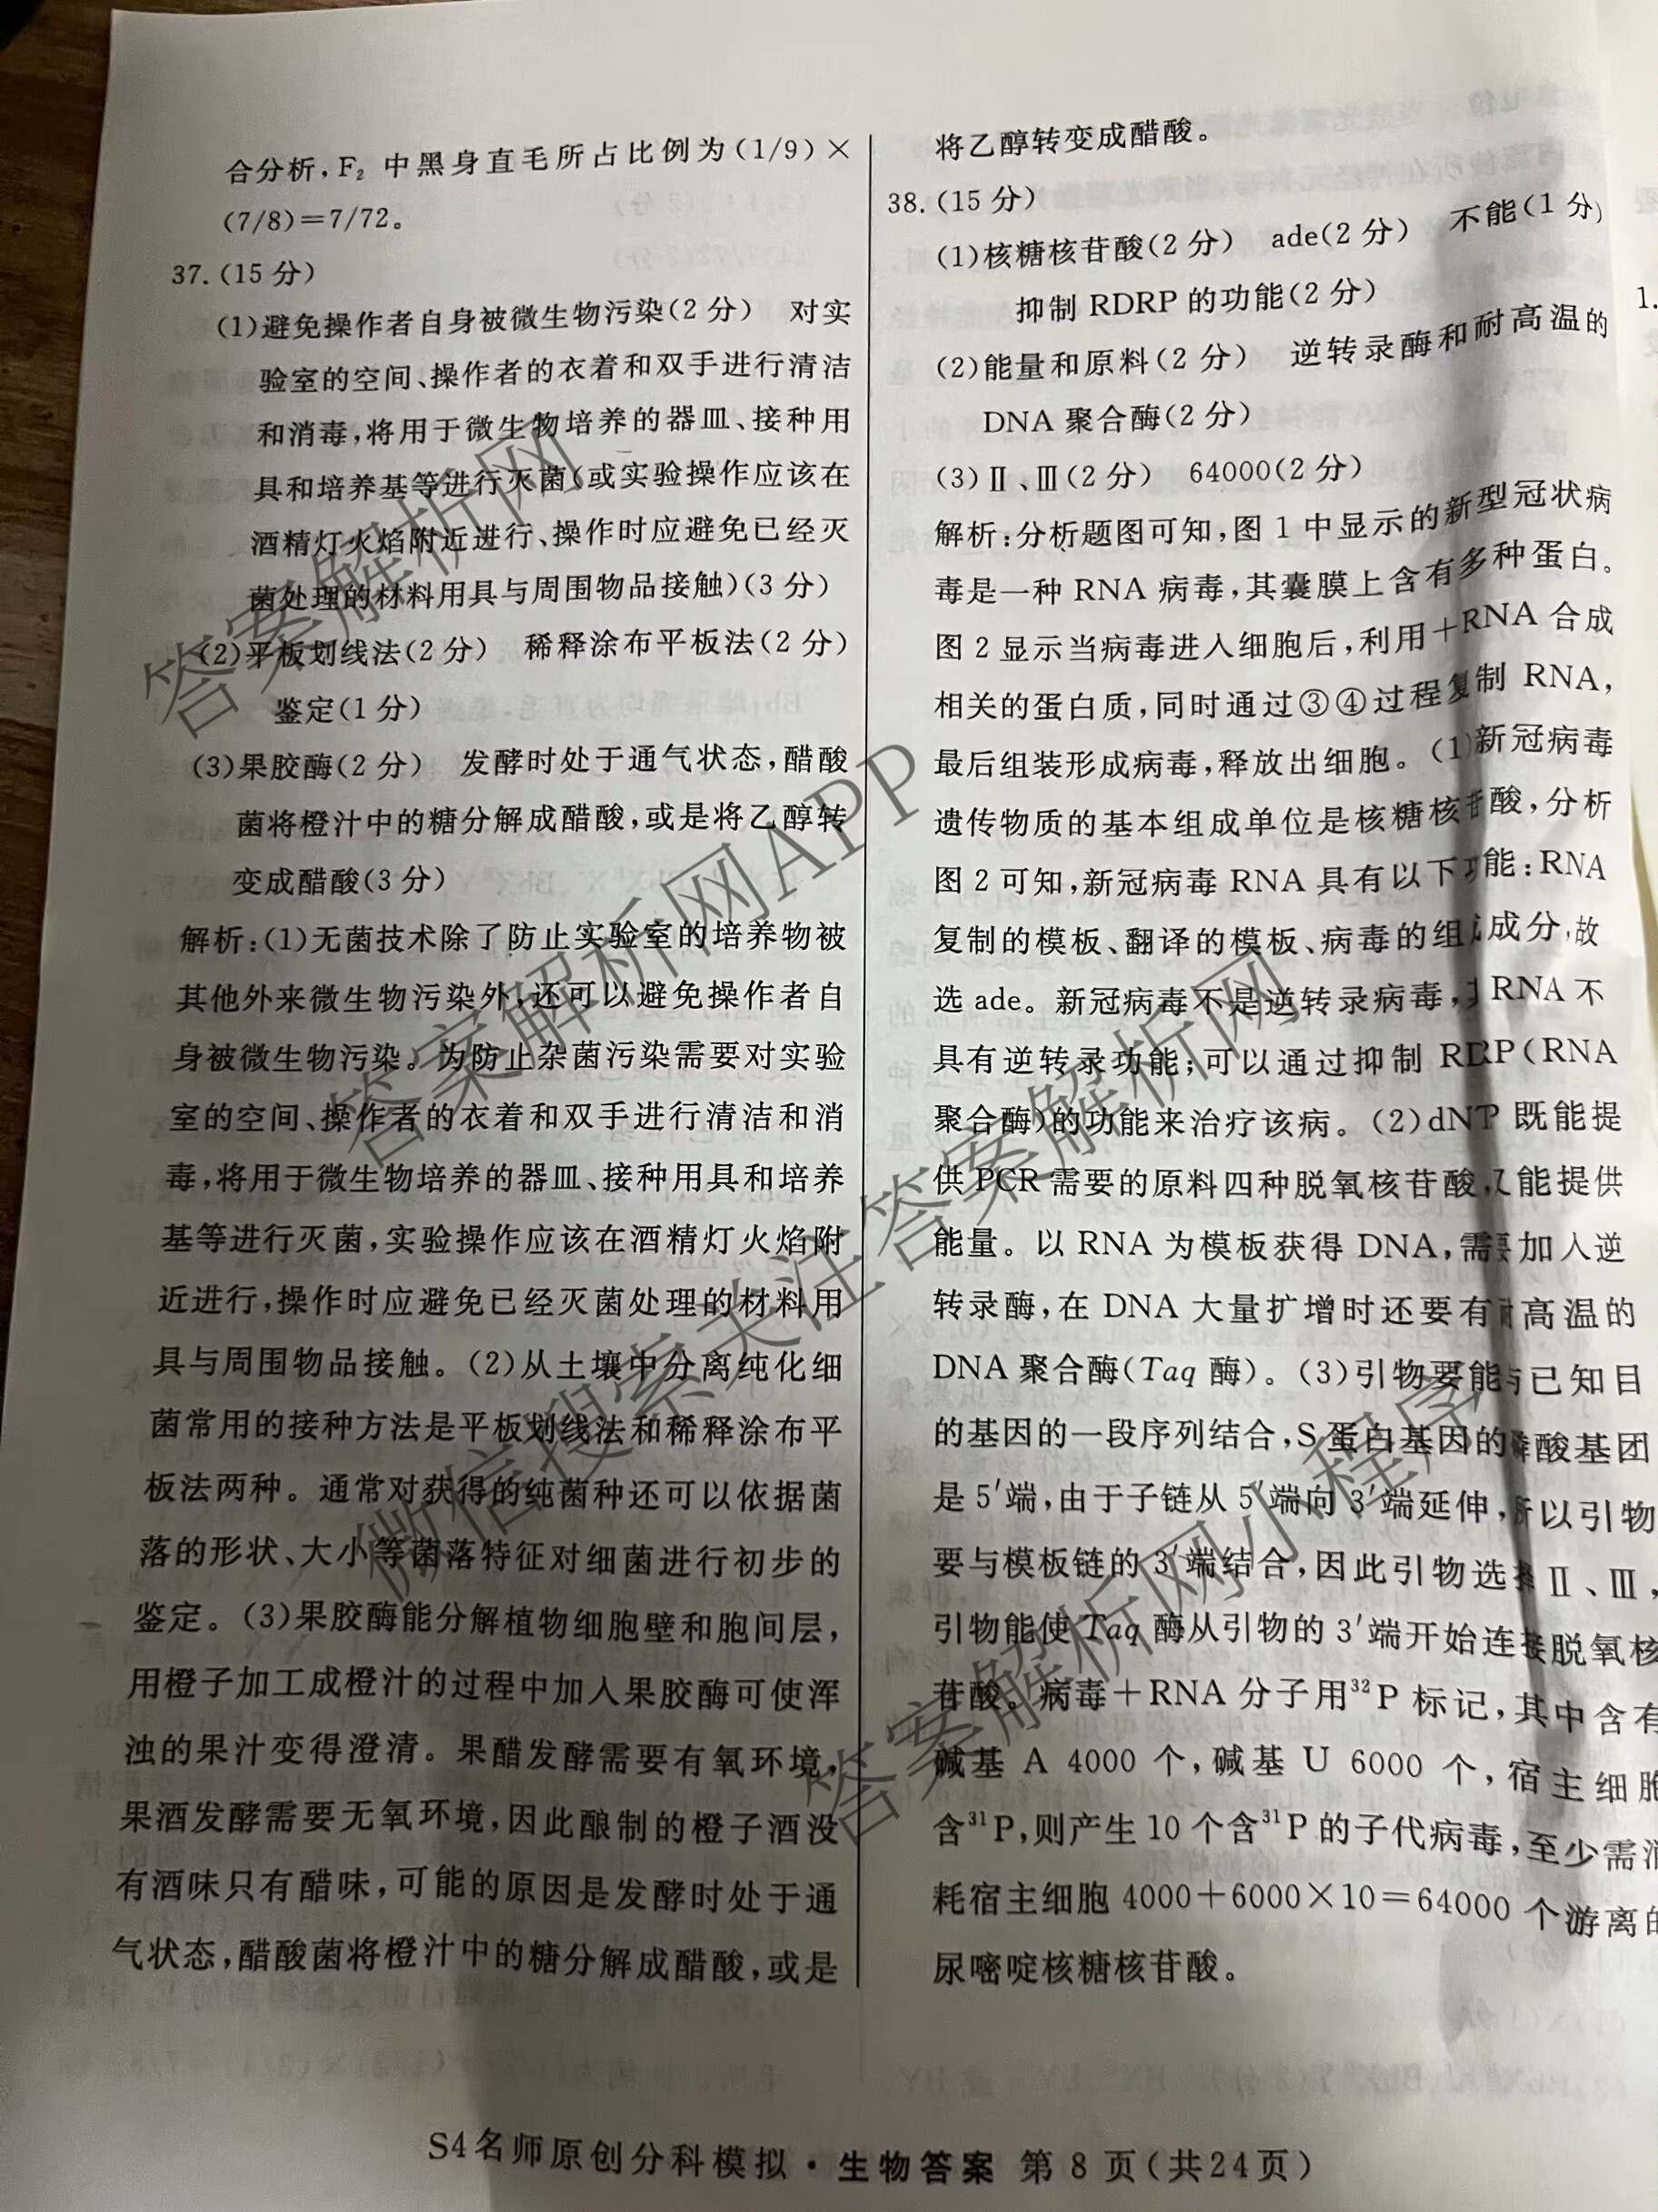 合分析,F₂ 中黑身直毛所占比例为(1/9)×
(7/8)=7/72。
37.(15 分)
(1)避免操作者自身被微生物污染(2 分) 对实
验室的空间、操作者的衣着和双手进行清洁
和消毒,将用于微生物培养的器皿、接种用
具和培养基等进行灭菌(或实验操作应该在
酒精灯火焰附近进行、操作时应避免已经灭
菌处理的材料用具与周围物品接触)(3 分)
(2)平板划线法(2 分) 稀释涂布平板法(2 分)
鉴定(1 分)
(3)果胶酶(2 分) 发酵时处于通气状态,醋酸
菌将橙汁中的糖分解成醋酸,或是将乙醇转
变成醋酸(3 分)
解析:(1)无菌技术除了防止实验室的培养物被
其他外来微生物污染外,还可以避免操作者自
身被微生物污染。为防止杂菌污染需要对实验
室的空间、操作者的衣着和双手进行清洁和消
毒,将用于微生物培养的器皿、接种用具和培养
基等进行灭菌,实验操作应该在酒精灯火焰附
近进行,操作时应避免已经灭菌处理的材料用
具与周围物品接触。(2)从土壤中分离纯化细
菌常用的接种方法是平板划线法和稀释涂布平
板法两种。通常对获得的纯菌种还可以依据菌
落的形状、大小等菌落特征对细菌进行初步的
鉴定。(3)果胶酶能分解植物细胞壁和胞间层,
用橙子加工成橙汁的过程中加入果胶酶可使浑
浊的果汁变得澄清。果醋发酵需要有氧环境,
果酒发酵需要无氧环境,因此酿制的橙子酒没
有酒味只有醋味,可能的原因是发酵时处于通
气状态,醋酸菌将橙汁中的糖分解成醋酸,或是
将乙醇转变成醋酸。
38.(15 分)
(1)核糖核苷酸(2 分) ade(2 分) 不能(1 分)
抑制 RDRP 的功能(2 分)
(2)能量和原料(2 分) 逆转录酶和耐高温的
DNA 聚合酶(2 分)
(3)Ⅱ、Ⅲ(2 分) 64000(2 分)
解析:分析题图可知,图 1 中显示的新型冠状病
毒是一种 RNA 病毒,其囊膜上含有多种蛋白。
图 2 显示当病毒进入细胞后,利用+RNA 合成
相关的蛋白质,同时通过③④过程复制 RNA,
最后组装形成病毒,释放出细胞。(1)新冠病毒
遗传物质的基本组成单位是核糖核苷酸,分析
图 2 可知,新冠病毒 RNA 具有以下功能:RNA
复制的模板、翻译的模板、病毒的组成成分,故
选 ade。新冠病毒不是逆转录病毒,其 RNA 不
具有逆转录功能;可以通过抑制 RDRP(RNA
聚合酶)的功能来治疗该病。(2)dNTP 既能提
供 PCR 需要的原料四种脱氧核苷酸,又能提供
能量。以 RNA 为模板获得 DNA,需要加入逆
转录酶,在 DNA 大量扩增时还要有耐高温的
DNA 聚合酶(Taq 酶)。(3)引物要能与已知目
的基因的一段序列结合,S 蛋白基因的磷酸基团
是 5′端,由于子链从 5′端向 3′端延伸,所以引物
要与模板链的 3′端结合,因此引物选择Ⅱ、Ⅲ,
引物能使 Taq 酶从引物的 3′端开始连接脱氧核
苷酸。病毒+RNA 分子用³²P 标记,其中含有
碱基 A 4000 个,碱基 U 6000 个,宿主细胞
含³¹P,则产生 10 个含³¹P 的子代病毒,至少需消
耗宿主细胞 4000+6000×10=64000 个游离的
尿嘧啶核糖核苷酸。
1.
S4名师原创分科模拟·生物答案 第 8 页(共24页)
答案解析网
答案解析网APP
微信搜索关注答案解析网
答案解析网小程序